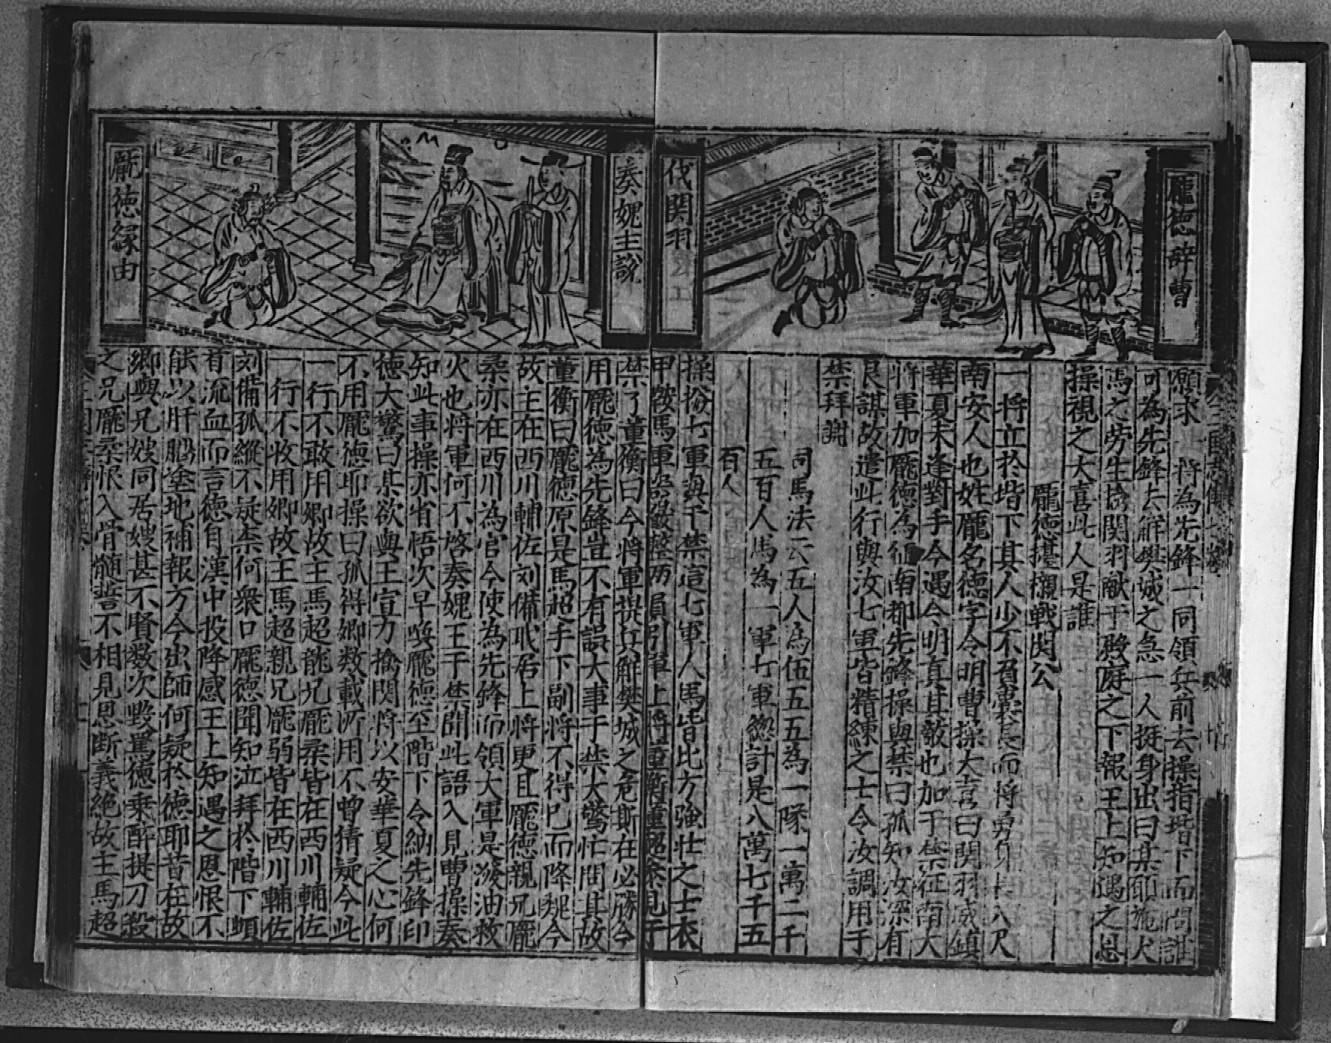 龐德辞曹
伐関羽
願求一將為先鋒一同領兵前去操指堦下而問誰
可為先鋒去解樊城之急一人挺身出曰某願施犬
馬之劳生擒関羽献于殿庭之下報王上知遇之恩
操視之大喜此人是誰
龐德擡櫬戰関公
一將立於堦下其人少不
南安人也姓龐名德字令明曹操大喜曰関羽威鎮
華夏未逢對手今遇令明真其敵也加于禁征南大
將軍加龐德為征南都先鋒操與禁曰孤知汝深有
良謀故遣此行與汝七軍皆精練之士令汝調用于
禁拜謝
司馬法云五人為伍五五為一隊一萬二千
五百人馬為一軍七軍總計是八萬七千五
百人
操撥七軍與于禁這七軍人馬皆比方強壮之士衣
甲鞍馬軍器嚴整两員引軍上將董衡董超參見于
禁了董衡曰今將軍提兵解樊城之危斯在必勝今
用龐德為先鋒豈不有誤大事于禁大驚忙問其故
董衡曰龐德原是馬超手下副將不得已而降魏今
故主在西川輔佐刘俻职居上將更且龐德親兄龐
柔亦在西川為官今使為先鋒而領大軍是潑油救
火也將軍何不啓奏媿王于禁聞此語入見曹操奏
知此事操亦省悟次早喚龐德至階下令納先鋒印
德大驚曰某欲與王宣力擒関將以安華夏之心何
不用龐德耶操曰孤得卿数載所用不曾猜疑今此
一行不敢用卿故主馬超龍兄龐柔皆在西川輔佐
一行不收用卿故王馬超親兄龐弱皆在西川輔佐
刘俻孤縱不疑柰何衆口龐德聞知泣拜於階下頓
首流血而言德自漢中投降感王上知遇之恩恨不
能以肝腦塗地補報方今出師何疑於德耶昔在故
鄉與兄嫂同居嫂甚不賢数次毀罵德乗醉提刀殺
之兄龐柔恨入骨髄誓不相見恩断義絶故主馬超
奏媿主說
龐德緣由